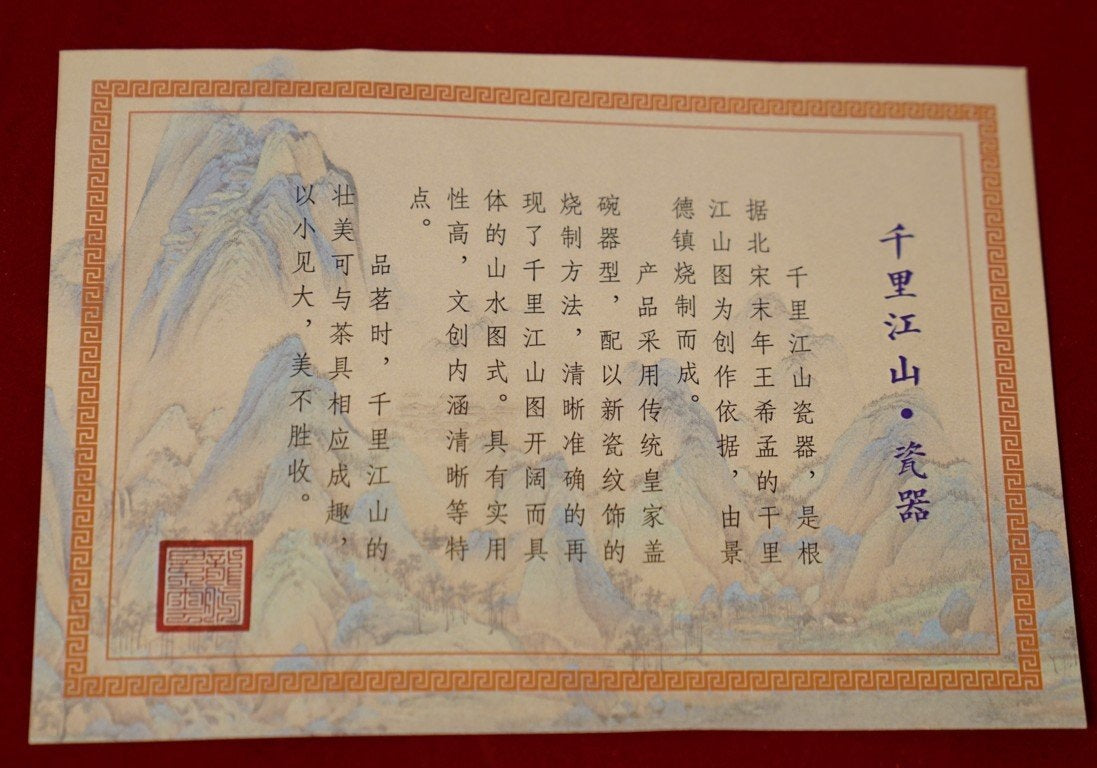 千里江山•瓷器
千里江山瓷器，是根
据北宋末年王希孟的千里
江山图为创作依据，由景
德镇烧制而成。
产品采用传统皇家盖
碗器型，配以新瓷纹饰的
烧制方法，清晰准确的再
现了千里江山图开阔而具
体的山水图式。具有实用
性高，文创内涵清晰等特
点。
品茗时，千里江山的
壮美可与茶具相应成趣，
以小见大，美不胜收。